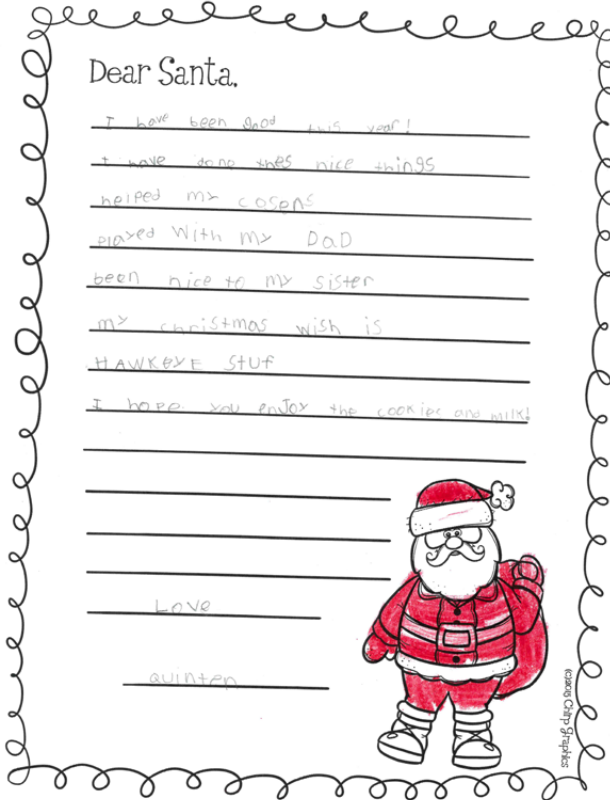 Dear Santa,
I have been good this year!
I have done thes nice things
helped my cosens
played with my DaD
been nice to my sister
my christmas wish is
HAWKEYE stuf
I hope you enjoy the cookies and milk!
Love
quinten
(c)2015 Chirp Graphics